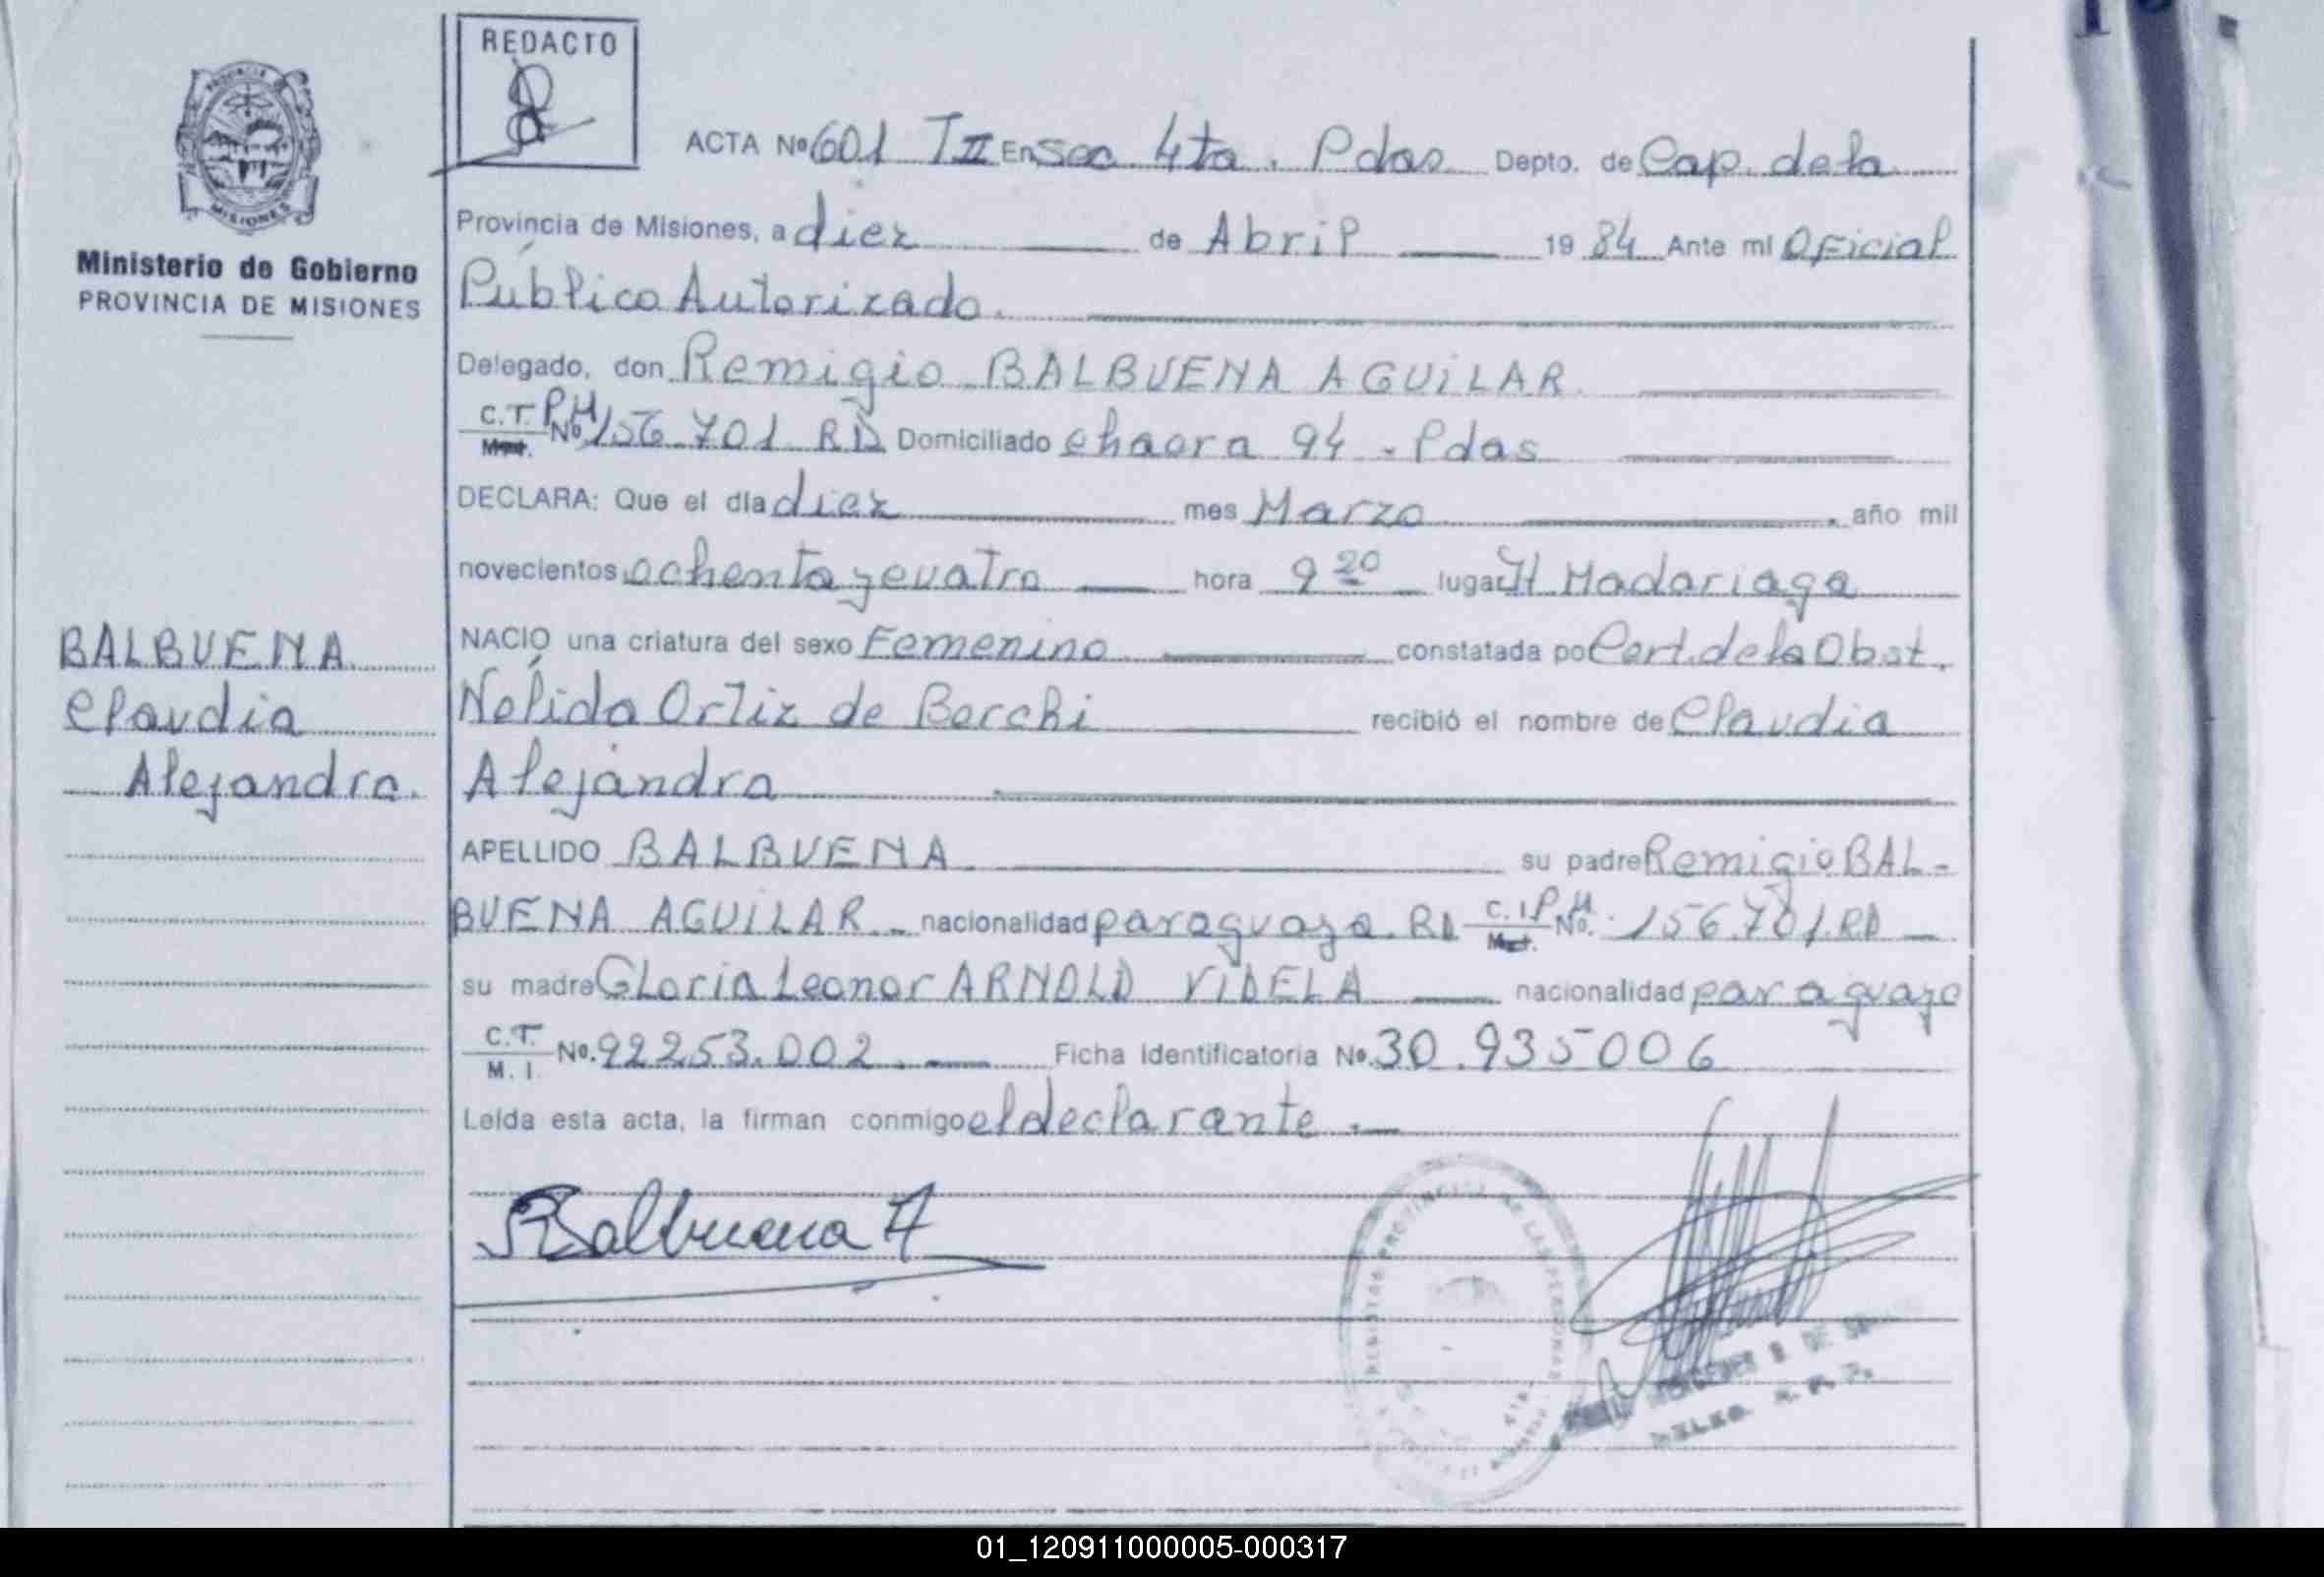 REDACTO
MISIONES
Ministerio de Gobierno
PROVINCIA DE MISIONES
ACTA Nº 601 T II En Sec. 4ta. Pdas. Depto. de Cap. de la
Provincia de Misiones, a diez de Abril 19 84 Ante mí Oficial
Público Autorizado.
Delegado, don Remigio BALBUENA AGUILAR.
C.T. P.M. Mat. Nº 156.701 RD Domiciliado chacra 94 - Pdas
DECLARA: Que el día diez mes Marzo año mil
novecientos ochenta y cuatro hora 9 20 lugar H Madariaga
NACIO una criatura del sexo Femenino constatada por Cert. de la Obst.
Nélida Ortiz de Berchi recibió el nombre de Claudia
Alejandra
APELLIDO BALBUENA su padre Remigio BAL-
BUENA AGUILAR nacionalidad paraguaya. RD C.I. P.M. Mat. No. 156.701.RD
su madre Gloria Leonor ARNOLD VIDELA nacionalidad paraguaya
C.T. M.I. Nº. 92253.002. Ficha Identificatoria Nº. 30.935006
Leída esta acta, la firman conmigo el declarante.
BALBUENA
Claudia
Alejandra.
Balbuena A
01_120911000005-000317